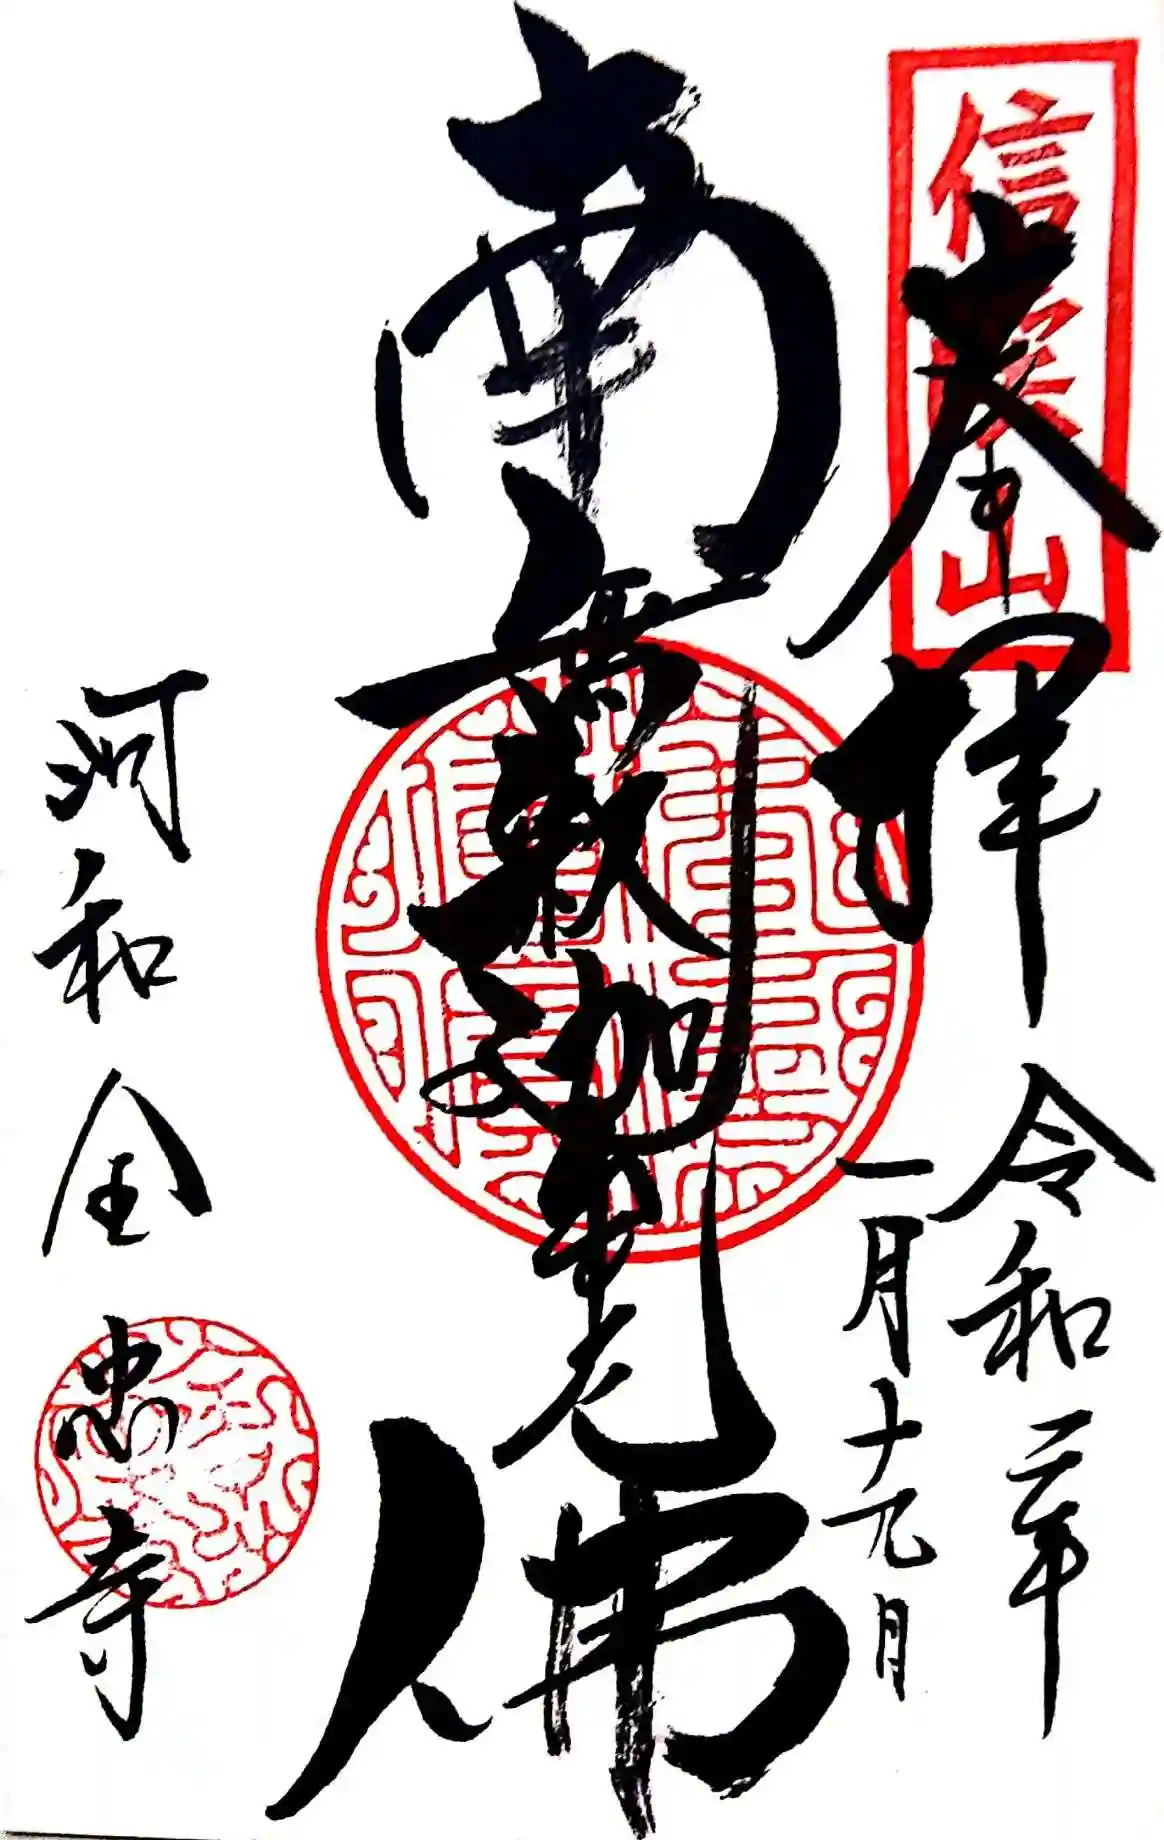 奉拝
令和二年
一月十九日
南無釈迦牟尼佛
河和 全忠寺